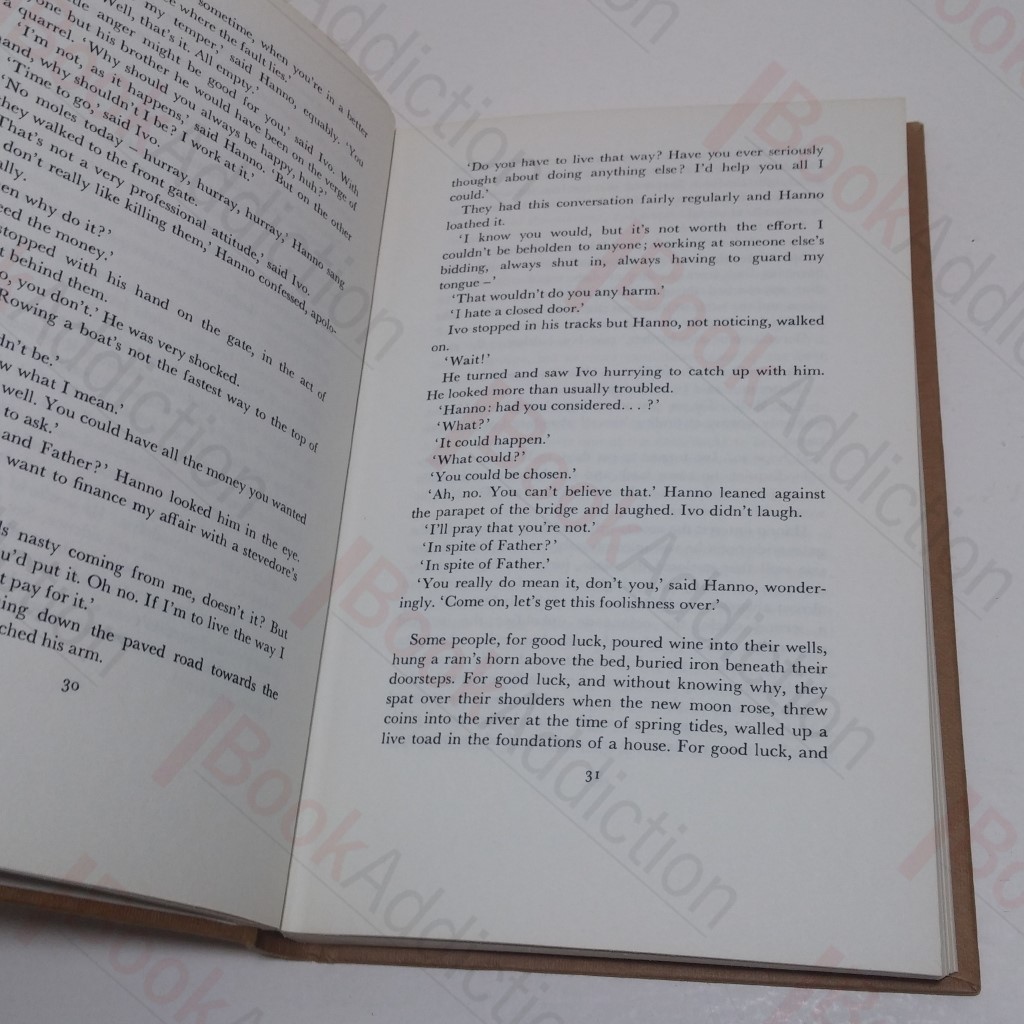 sometime, when you're in a better
where the fault lies.'
my temper,' said Hanno, equably. 'You
Well, that's it. All empty.'
the anger might be good for you,' said Ivo. With
one but his brother he would have been on the verge of
a quarrel. 'Why should you always be happy, huh?'
'I'm not, as it happens,' said Hanno. 'But on the other
hand, why shouldn't I be? I work at it.'
'Time to go,' said Ivo.
'No moles today – hurray, hurray, hurray,' Hanno sang
they walked to the front gate.
That's not a very professional attitude,' said Ivo.
don't really like killing them,' Hanno confessed, apolo-
ally.
en why do it?'
eed the money.'
stopped with his hand on the gate, in the act of
t behind them.
o, you don't.' He was very shocked.
Rowing a boat's not the fastest way to the top of
dn't be.'
w what I mean.'
well. You could have all the money you wanted
to ask.'
and Father?' Hanno looked him in the eye.
want to finance my affair with a stevedore's
ds nasty coming from me, doesn't it? But
u'd put it. Oh no. If I'm to live the way I
t pay for it.'
ing down the paved road towards the
ched his arm.
30
'Do you have to live that way? Have you ever seriously
thought about doing anything else? I'd help you all I
could.'
They had this conversation fairly regularly and Hanno
loathed it.
'I know you would, but it's not worth the effort. I
couldn't be beholden to anyone; working at someone else's
bidding, always shut in, always having to guard my
tongue –'
'That wouldn't do you any harm.'
'I hate a closed door.'
Ivo stopped in his tracks but Hanno, not noticing, walked
on.
'Wait!'
He turned and saw Ivo hurrying to catch up with him.
He looked more than usually troubled.
'Hanno: had you considered. . . ?'
'What?'
'It could happen.'
'What could?'
'You could be chosen.'
'Ah, no. You can't believe that.' Hanno leaned against
the parapet of the bridge and laughed. Ivo didn't laugh.
'I'll pray that you're not.'
'In spite of Father?'
'In spite of Father.'
'You really do mean it, don't you,' said Hanno, wonder-
ingly. 'Come on, let's get this foolishness over.'
Some people, for good luck, poured wine into their wells,
hung a ram's horn above the bed, buried iron beneath their
doorsteps. For good luck, and without knowing why, they
spat over their shoulders when the new moon rose, threw
coins into the river at the time of spring tides, walled up a
live toad in the foundations of a house. For good luck, and
31
BookAddiction